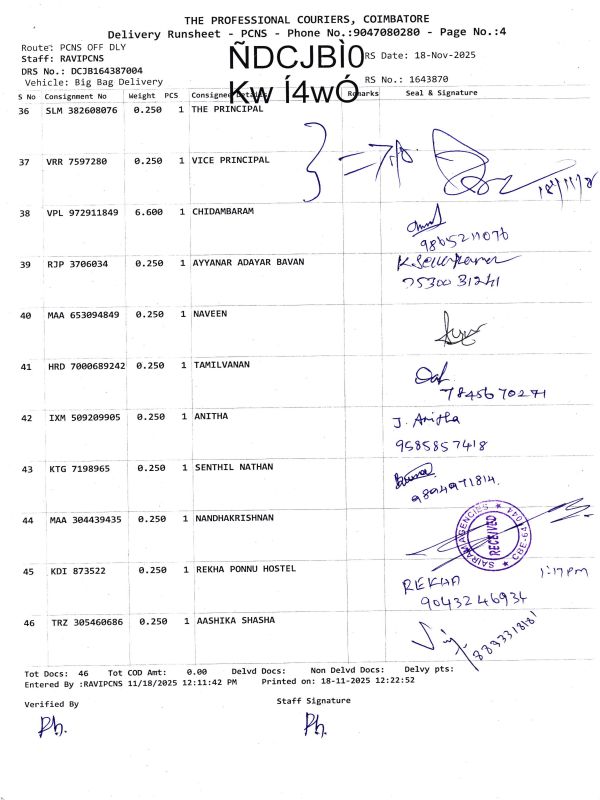 THE PROFESSIONAL COURIERS, COIMBATORE
Delivery Runsheet - PCNS - Phone No.:9047080280 - Page No.:4
Route: PCNS OFF DLY
Staff: RAVIPCNS
DRS No.: DCJB164387004
Vehicle: Big Bag Delivery
ÑDCJBÌ0
Kw Í4wÓ
RS Date: 18-Nov-2025
RS No.: 1643870
S No Consignment No Weight PCS Consignee Details Remarks Seal & Signature
36 SLM 382608076 0.250 1 THE PRINCIPAL
37 VRR 7597280 0.250 1 VICE PRINCIPAL
18/11/2
38 VPL 972911849 6.600 1 CHIDAMBARAM
9865211076
39 RJP 3706034 0.250 1 AYYANAR ADAYAR BAVAN
7530031241
40 MAA 653094849 0.250 1 NAVEEN
41 HRD 7000689242 0.250 1 TAMILVANAN
7845670271
42 IXM 509209905 0.250 1 ANITHA J. Anitha
9585857418
43 KTG 7198965 0.250 1 SENTHIL NATHAN
9894971814.
44 MAA 304439435 0.250 1 NANDHAKRISHNAN
SAIRAM AGENCIES ★ CBE-641044 ★
RECEIVED
45 KDI 873522 0.250 1 REKHA PONNU HOSTEL REKHA 1:17 PM
9043246934
46 TRZ 305460686 0.250 1 AASHIKA SHASHA
8893318181
Tot Docs: 46 Tot COD Amt: 0.00 Delvd Docs: Non Delvd Docs: Delvy pts:
Entered By :RAVIPCNS 11/18/2025 12:11:42 PM Printed on: 18-11-2025 12:22:52
Verified By Staff Signature